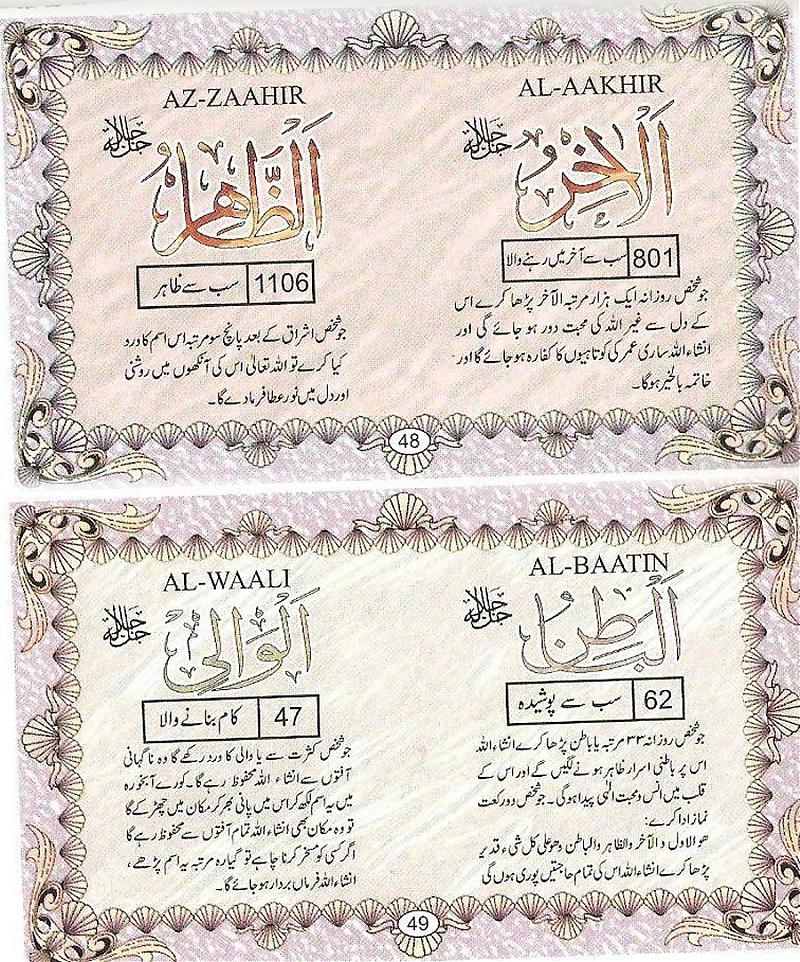 AL-AAKHIR
جل جلالہ
اَلْاٰخِرُ
801 سب سے آخر میں رہنے والا
جو شخص روزانہ ایک ہزار مرتبہ الآخر پڑھا کرے اس
کے دل سے غیر اللہ کی محبت دور ہو جائے گی اور
انشاء اللہ ساری عمر کی کوتاہیوں کا کفارہ ہو جائے گا اور
خاتمہ بالخیر ہوگا۔
AZ-ZAAHIR
جل جلالہ
اَلظَّاهِرُ
1106 سب سے ظاہر
جو شخص اشراق کے بعد پانچ سو مرتبہ اس اسم کا ورد
کیا کرے تو اللہ تعالیٰ اس کی آنکھوں میں روشنی
اور دل میں نور عطا فرمادے گا۔
48
AL-BAATIN
جل جلالہ
اَلْبَاطِنُ
62 سب سے پوشیدہ
جو شخص روزانہ ۳۳ مرتبہ یا باطن پڑھا کرے انشاء اللہ
اس پر باطنی اسرار ظاہر ہونے لگیں گے اور اس کے
قلب میں انس و محبت الٰہی پیدا ہوگی۔ جو شخص دو رکعت
نماز ادا کرے:
ھو الاول و الآخر والظاہر والباطن وھو علی کل شیء قدیر
پڑھا کرے انشاء اللہ اس کی تمام حاجتیں پوری ہوں گی
AL-WAALI
جل جلالہ
اَلْوَالِي
47 کام بنانے والا
جو شخص کثرت سے یا والی کا ورد رکھے گا وہ ناگہانی
آفتوں سے انشاء اللہ محفوظ رہے گا۔ کورے آبخورہ
میں یہ اسم لکھ کر اس میں پانی بھر کر مکان میں چھڑکے گا
تو وہ مکان بھی انشاء اللہ تمام آفتوں سے محفوظ رہے گا
اگر کسی کو مسخر کرنا چاہے تو گیارہ مرتبہ یہ اسم پڑھے،
انشاء اللہ فرماں بردار ہو جائے گا۔
49